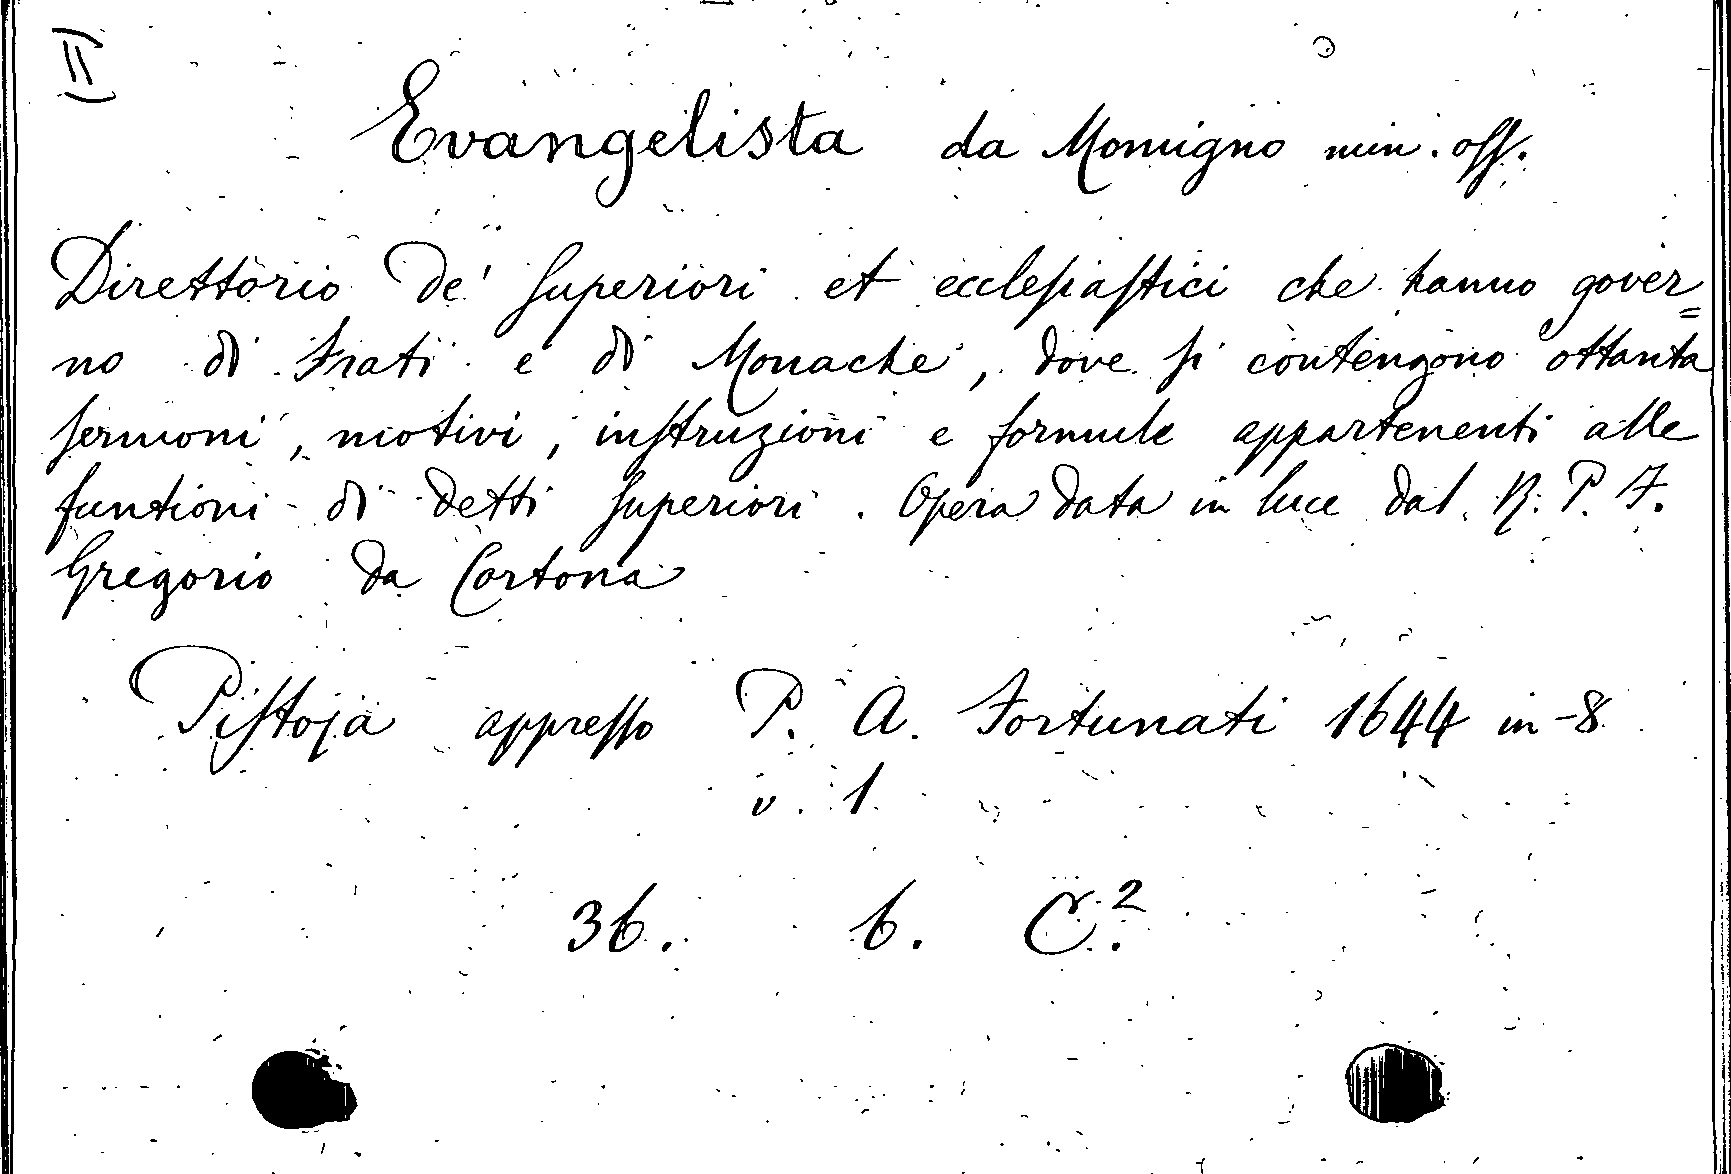 (=)
Evangelista da Momigno min. oss.
Direttorio de' superiori et ecclesiastici che hanno gover=
no di Frati e di Monache, dove si contengono ottanta
sermoni, motivi, instruzioni e formule appartenenti alle
funtioni di detti superiori. Opera data in luce dal R. P. F.
Gregorio da Cortona
Pistoja appresso P. A. Fortunati 1644 in-8
v. 1
36. 6. C.²